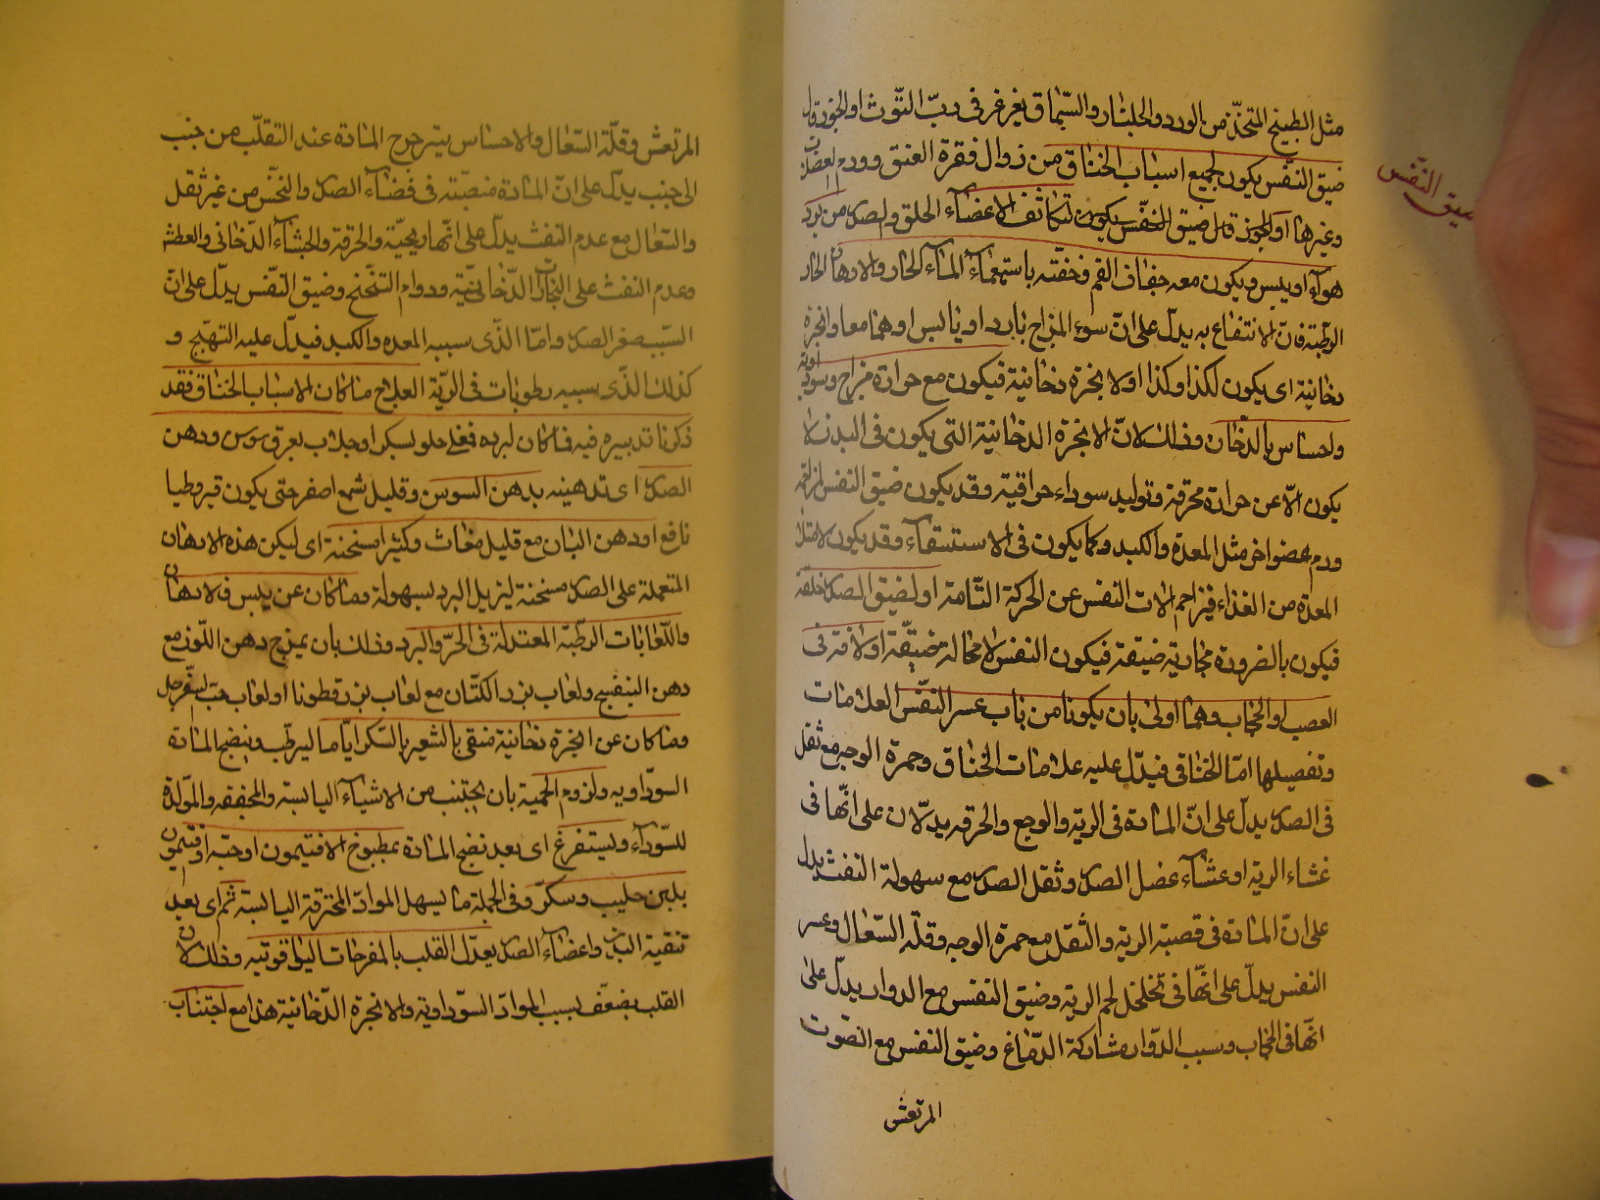 مثل الطبيخ المتخذ من الورد والجلنار والسماق يغرغر في ربّ التوث او الجوز قال
ضيق النفس يكون لجميع اسباب الخناق من زوال فقرة العنق وورم العضلات
ضيق النفس
وغيرها او قال ضيق النفس يكون لتكاثف الاعضاء الحلق والصدر من برد
هواء او يبس ويكون معه جفاف الفم وخفته باستعماء الماء الحار والادهان الحار
الرطبة فان الانتفاع به يدلّ على انّ سوء المزاج بارد او يابس او هما معا وابخرة
دخانية اى يكون لكذا وكذا او لابخرة دخانية فيكون مع حرارة مزاج وسوداوية
واحساس بالدخان وذلك لانّ الابخرة الدخانية التى يكون فى البدن لا
يكون الّا عن حرارة محرقة وتوليد سوداء حراقية وقد يكون ضيق النفس لمزاحمة
ورم عضو اخر مثل المعدة والكبد وكما يكون فى الاستسقاء وقد يكون لامتلاء
المعدة من الغذاء فيزاحم الات النفس عن الحركة التّامة او لضيق الصدر خلقة
فيكون بالضرورة مجاريه ضيقة فيكون النفس لا محالة ضيّقة او لافة فى
العصب او الحجاب وهما اولى بان يكونا من باب عسر النفّس العلامات
وتفصيلها امّا الخناقى فيدّل عليه علامات الخناق وحمرة الوجه مع ثقل
فى الصدر يدلّ على انّ المادة فى الرية والوجع والحرقه يدلّان على انّها فى
غشاء الرية او غشاء عضل الصدر وثقل الصدر مع سهولة النفث يدل
على انّ المادة فى قصبة الرية والثقل مع حمرة الوجه وقلّة السّعال وعسر
النفس يدلّ على انّها فى تخلخل لحم الرية وضيق النفس مع الدوار يدلّ على
انّها فى الحجاب وسبب الدّوار مشاركة الدّماغ وضيق النفس مع الصّوت
المرتعش
المرتعش وقلّة السّعال والاحساس بترجرج المادة عند التقلّب من جنب
الى جنب يدلّ على انّ المادة منصبّته فى فضاء الصدر والنخس من غير ثقل
والسّعال مع عدم النفث يدلّ على انّها ريحيّة والحرقة والجشاء الدّخانى والعطش
وعدم النفث على البخارات الدّخانيّة ودوام التنحنح وضيق النّفس يدلّ على انّ
السّبب صغر الصدر وامّا الذّى سببه المعدة والكبد فيدلّ عليه التهبّج و
كذلك الذّى سببه رطوبات فى الريّة العلاج ما كان لاسباب الخناق فقد
ذكرنا تدبيره فيه فما كان لبرده فغلى حلو بسكر او جلاب بعرق سوس ودهن
الصدر اى تدهينه بدهن السوسن وقليل شمع اصفر حتى يكون قيروطيا
نافع او دهن البان مع قليل مغاث وكثيرا مسخنة اى ليكن هذه الادهان
المتعملة على الصدر مسخنة ليزيل البرد بسهولة وما كان عن يبس فالادهان
واللّعابات الرطبّة المعتدلة فى الحرّ والبرد وذلك بان يمزج دهن اللّوز مع
دهن البنفسج ولعاب بزر الكتّان مع لعاب بزر قطونا او لعاب حبّ السفرجل
وما كان عن ابخرة دخانية فنقى بالشعير بالسّكر ايّاما ليرطّب وينضج المادة
السوّداويه ولزوم الحمية بان يجتنب من الاشياء اليابسة والمجففه والموّلدة
للسّوداء ويستفرغ اى بعد نضج المادة بمطبوخ الافتيمون او حبّ افتيمون
بلبن حليب وسكّر وفى الجملة ما يسهل الموادّ المحترقة اليابسة ثم اى بعد
تنقية البدن واعضاء الصدر يعدل القلب بالمفرحات الياقوتيه وذلك لان
القلب يضعّف بسبب الموادّ السوّداوية والابخرة الدّخانية هذا مع اجتناب